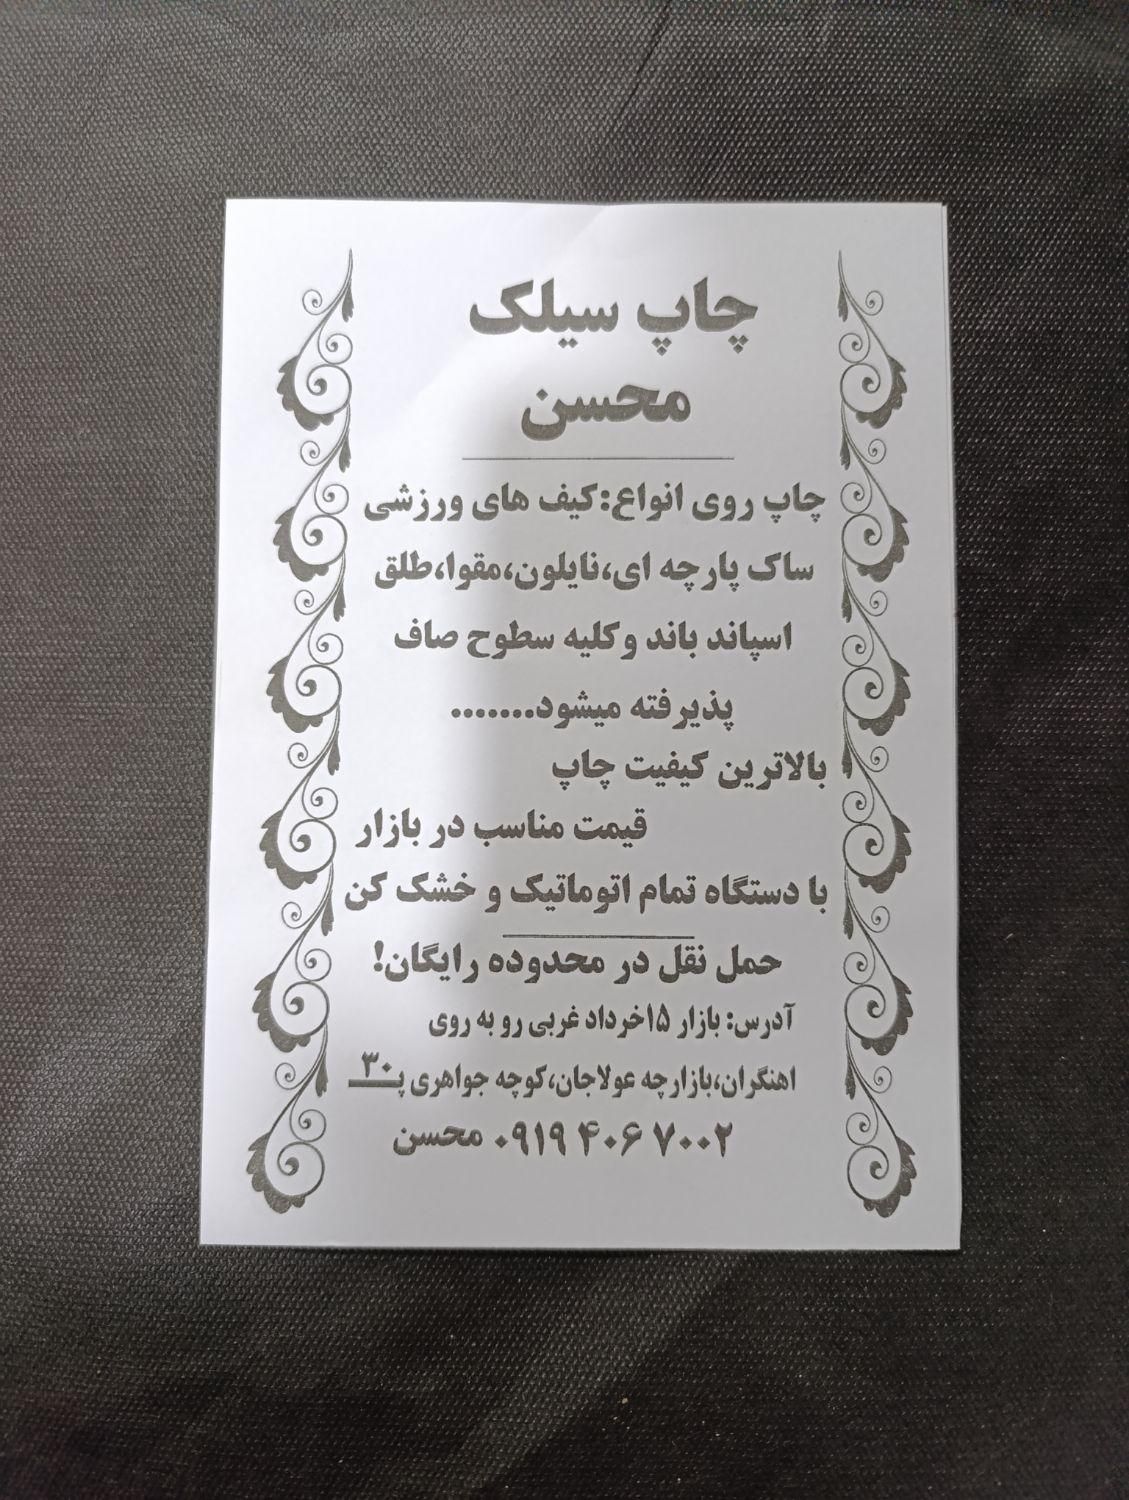 چاپ سیلک
محسن
چاپ روی انواع:کیف های ورزشی
ساک پارچه ای،نایلون،مقوا،طلق
اسپاند باند وکلیه سطوح صاف
پذیرفته میشود.......
بالاترین کیفیت چاپ
قیمت مناسب در بازار
با دستگاه تمام اتوماتیک و خشک کن
حمل نقل در محدوده رایگان!
آدرس: بازار ۱۵خرداد غربی رو به روی
اهنگران،بازارچه عولاجان،کوچه جواهری پـــ۳۰
۰۹۱۹ ۴۰۶ ۷۰۰۲ محسن